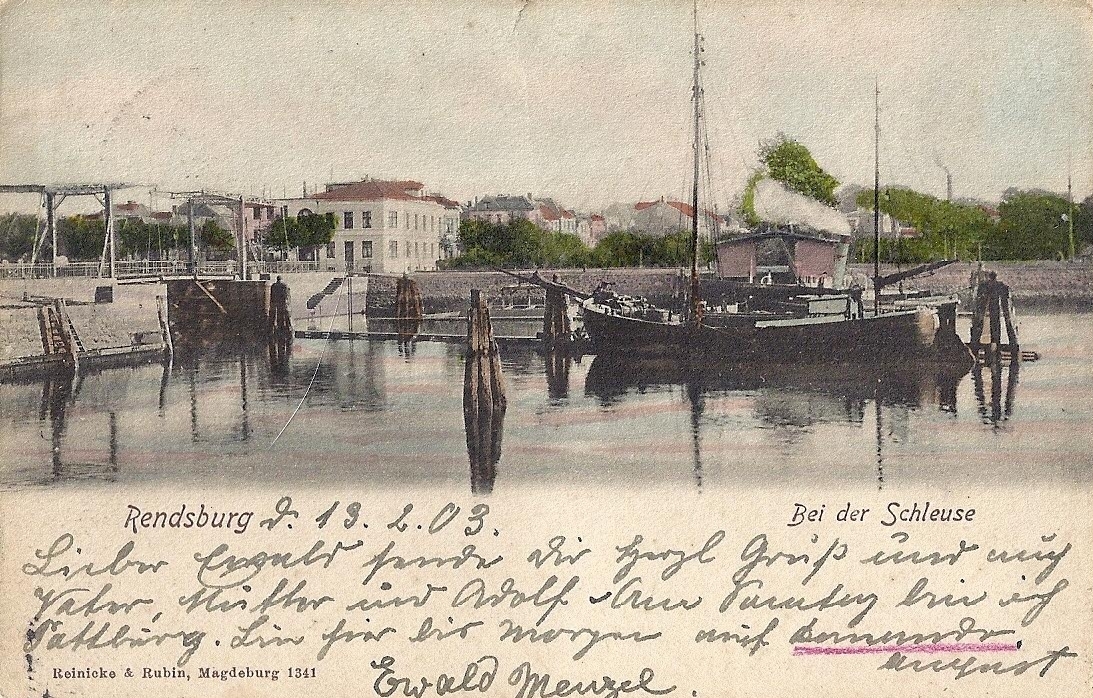 Rendsburg d. 13. 2. 03.
Bei der Schleuse
Lieber Ewald sende dir Herzl Gruß und auch
Vater, Mutter und Adolf Am Sonntag bin ich
Pattburg. Bin hier bis Morgen auf Komando.
August
Reinicke & Rubin, Magdeburg 1341
Ewald Menzel.